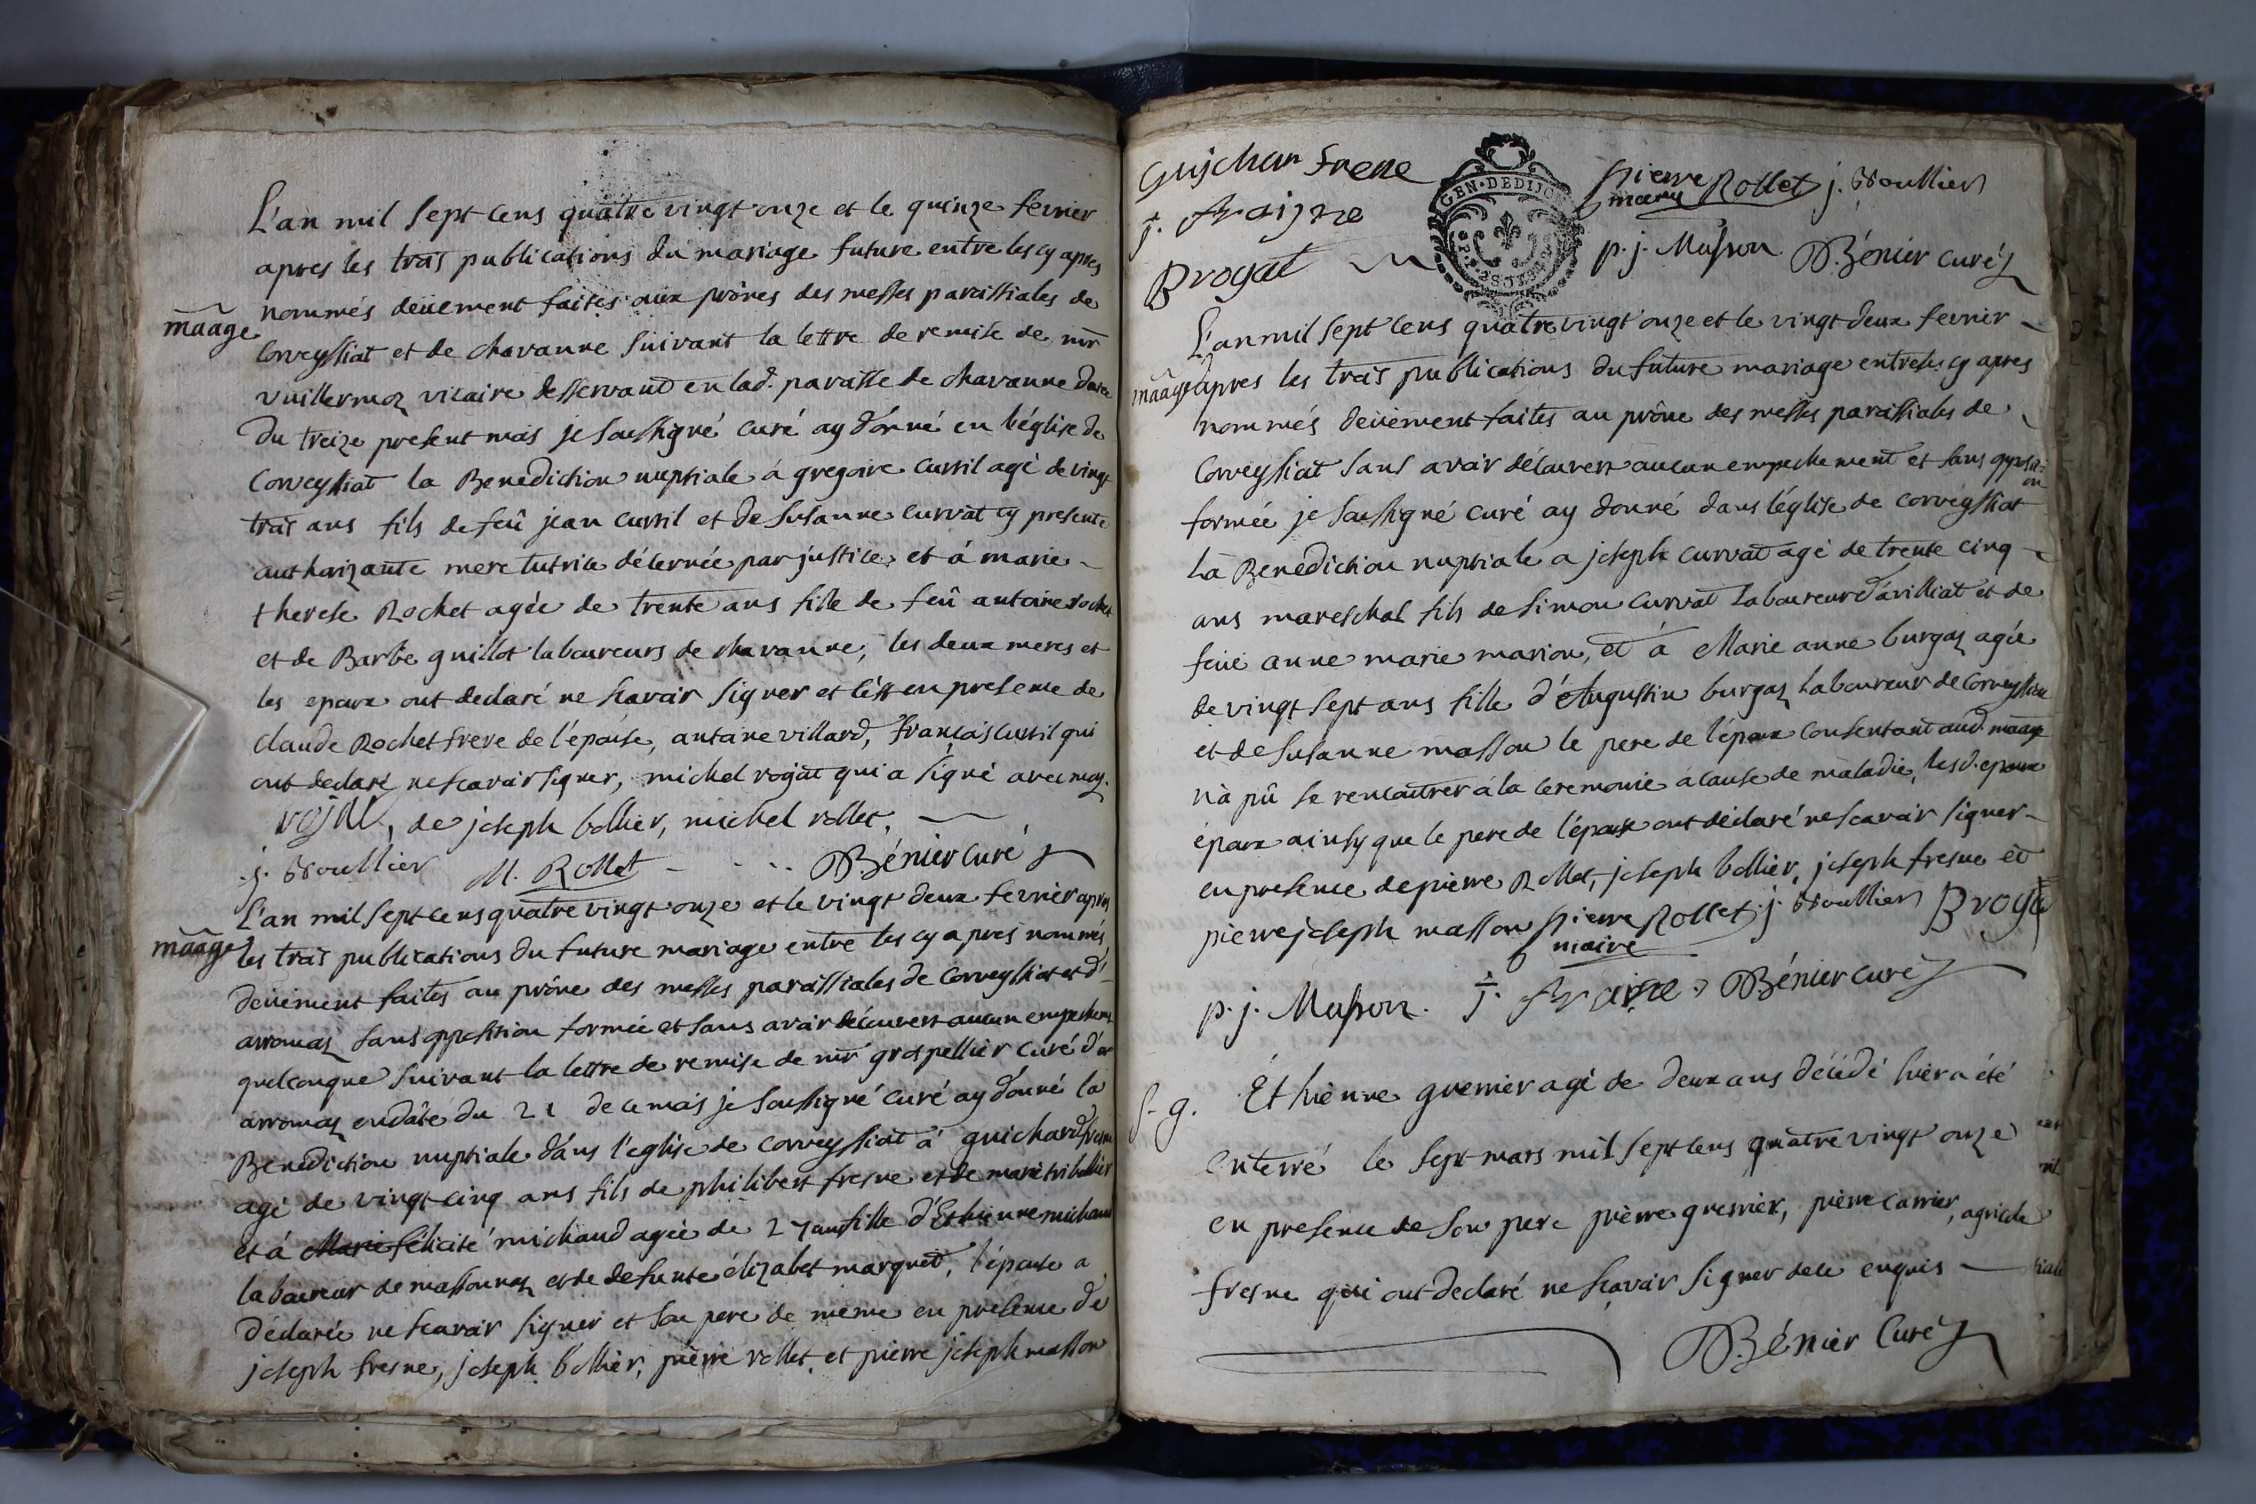 L'an mil sept cens quatre vingt onze et le quinze fevrier
apres les trois publications du mariage future entre les cy apres
nommés deüement faites aux prônes des messes paroissiales de
māāge
Corveyssiat et de chavanne suivant la lettre de remise de mr
vuillermoz vicaire desservant en lad. paroisse de chavanne datée
du treize present mois je soussigné curé ay donné en l'église de
Corveyssiat la Benediction nuptiale á gregoire curvil agé de vingt
trois ans fils de feû jean curvil et de Susanne curvat cy presente
authorizante mere tutrice décernée par justice et á marie
therese Rochet agée de trente ans fille de feû antoine rochet
et de Barbe guillot laboureurs de chavanne, les deux meres et
les epoux ont declaré ne scavoir signer et c'ést en presence de
claude Rochet frere de l'épouse, antoine villard, françois curvil qui
ont declaré ne scavoir signer, michel rojat qui a signé avec moy.
rojat, de joseph bollier, michel rollet,
j. Boullier M. Rollet Bénier curé
L'an mil sept cens quatre vingt onze et le vingt deux fevrier apres
māāge
les trois publications du future mariage entre les cy apres nommés
deüement faites au prône des messes paroissiales de Corveyssiat et d'
arromaz sans opposition formée et sans avoir découvert aucun empechem
quelconque suivant la lettre de remise de mr grospellier curé d'
arromaz en date du 21 de ce mois je soussigné curé ay donné la
Benediction nuptiale dans l'eglise de corveyssiat á guichard fresne
agé de vingt cinq ans fils de philibert fresne et de marie
et á Marie félicité michaud agée de 27 ans fille d'Ethienne michaud
laboureur de massonnaz et de defunte élizabet marquet, l'épouse a
déclarée ne scavoir signer et son pere de même en presence de
joseph fresne, joseph bollier, pierre rollet et pierre joseph masson
Guichar frene
j. fraisne
Brogat
GEN. DE DIJON
pierre Rollet j. Boullier
maire
p. j. Masson Bénier curé
L'an mil sept cens quatre vingt onze et le vingt deux fevrier
māāge
apres les trois publications du future mariage entre les cy apres
nommés deüement faites au prône des messes paroissiales de
Corveyssiat sans avoir découvert aucun empechement et sans opposition
formée je soussigné curé ay donné dans l'église de corveyssiat
la Benediction nuptiale a joseph curvat agé de trente cinq
ans mareschal fils de Simon curvat laboureur d'avilliat et de
feüe anne marie marion, et á Marie anne burgaz agée
de vingt sept ans fille d'Augustin burgaz laboureur de Corveyssiat
et de Susanne masson le pere de l'époux consentant aud. māāge
n'a pû se rencontrer á la ceremonie á cause de maladie, lesd. epoux
époux ainsy que le pere de l'épouse ont déclaré ne scavoir signer
en presence de pierre Rollet, joseph bollier, joseph fresne et
pierre joseph masson pierre Rollet j. Boullier Brogat
maire
p. j. Masson. j. fraisne Bénier curé
S. g.
Ethiénne grenier agé de deux ans décédé hier a été
enterré le sept mars mil sept cens quatre vingt onze
en presence de son pere pierre grenier, pierre carrier, agricole
fresne qui ont declaré ne scavoir signer de ce enquis
Bénier Curé